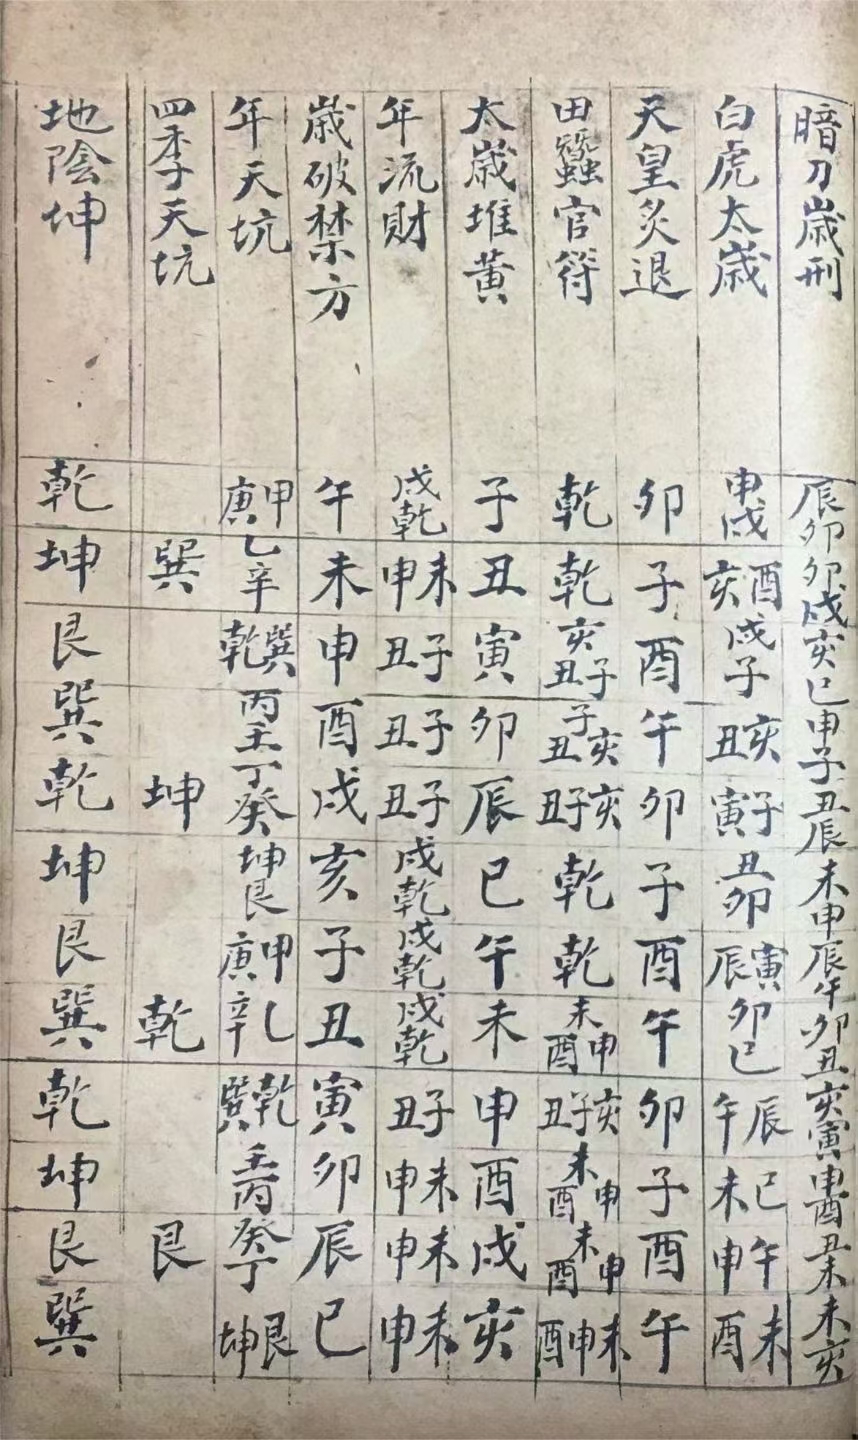 暗刀歲刑 辰卯 卯戌 亥巳 申子 丑辰 未申 辰午 卯丑 亥寅 申酉 丑未 未亥
白虎太歲 申戌 酉亥 戌子 亥丑 子寅 丑卯 寅辰 卯巳 辰午 巳未 午申 未酉
天皇炙退 卯 子 酉 午 卯 子 酉 午 卯 子 酉 午
田蠶官符 乾 乾 亥子丑 子亥丑 亥子丑 乾 乾 未申酉 亥子丑 未申酉 未申酉 未申酉
太歲堆黄 子 丑 寅 卯 辰 巳 午 未 申 酉 戌 亥
年流財 戌乾 未申 子丑 子丑 子丑 戌乾 戌乾 戌乾 子丑 未申 未申 未申
歲破禁方 午 未 申 酉 戌 亥 子 丑 寅 卯 辰 巳
年天坑 甲庚 乙辛 巽乾 丙壬 丁癸 坤艮 甲庚 乙辛 乾巽 壬丙 癸丁 艮坤
四季天坑 巽 坤 乾 艮
地陰坤 乾 坤 艮 巽 乾 坤 艮 巽 乾 坤 艮 巽